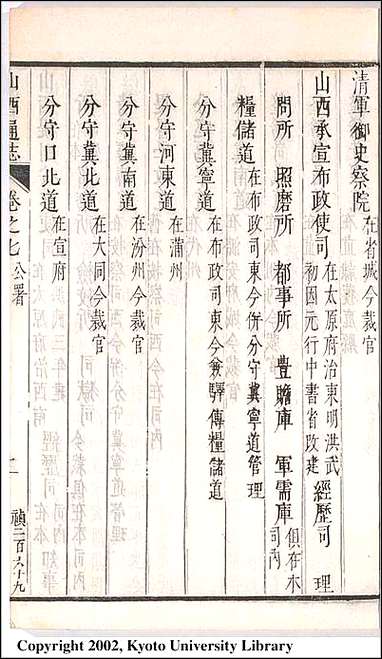 清軍御史察院在省城今裁官
山西承宣布政使司在太原府治東明洪武初因元行中書省改建 經歷司 理
問所 照磨所 都事所 豊贍庫 軍需庫俱在本司內
糧儲道在布政司東今併分守冀寧道管理
分守冀寧道在布政司東今兼驛傳糧儲道
分守河東道在蒲州
分守冀南道在汾州今裁官
分守冀北道在大同今裁官
分守口北道在宣府
山西通志 卷之七 公署 二 禎二百六十九
Copyright 2002, Kyoto University Library